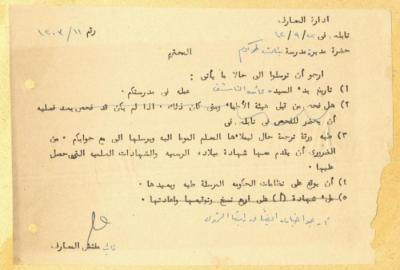 ادارة المعارف
نابلس في ١٢/٩/
رقم ١٢٠٣/١١
حضرة مديرة مدرسة بنات طولكرم المحترم
ارجو أن ترسلوا الي حالا ما يأتي :
١) تاريخ بدء السيد عمله في مدرستكم
٢) هل فحص من قبل هيئة الأطباء ومتى كان ذلك . اذا لم يكن قد فحص بعد فعليه
أن يحضر للفحص في نابلس في
٣) طيه ورقة ترجمة حال ليملأها المعلم الموما اليه ويرسلها الي مع جوابكم . من
الضروري أن يقدم معها شهادة ميلاده الرسمية والشهادات العلمية التي حصل
عليها
٤) أن يوقع على نظامات الحكومه المرسلة طيه ويعيدها
٥) ملء شهادة (أ) على اربع نسخ وتوقيعها واعادتها
مفتش المعارف